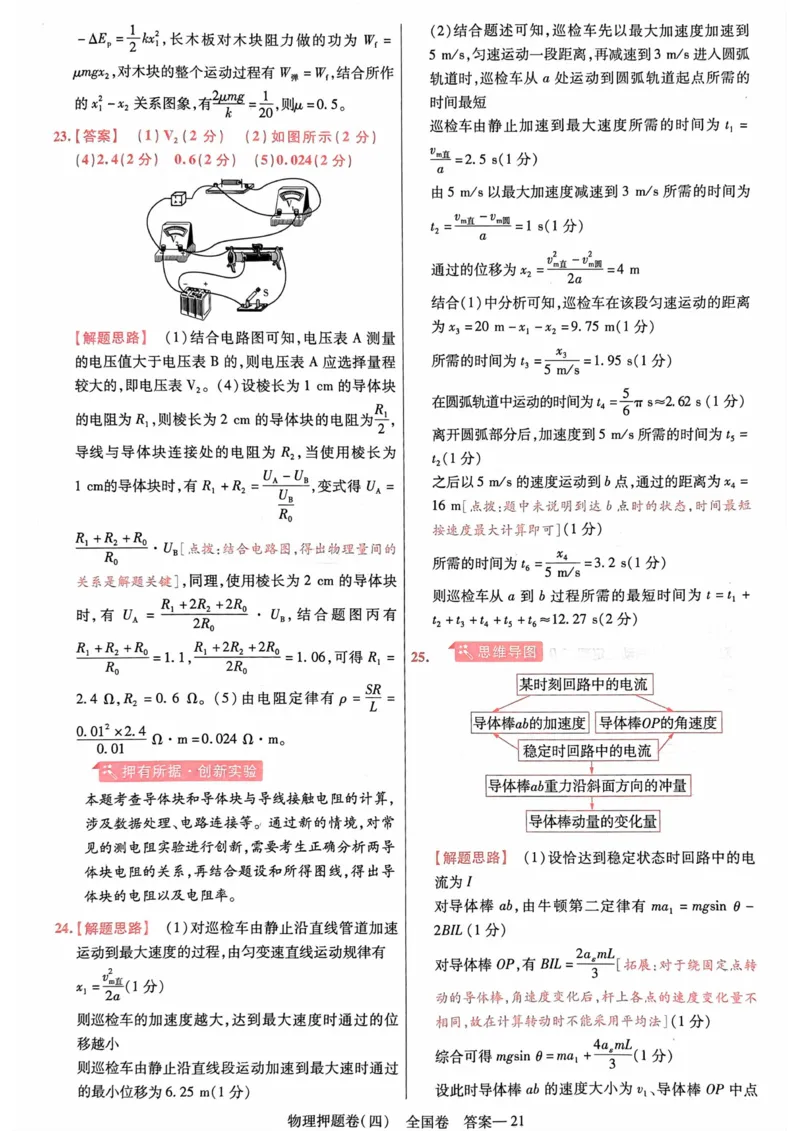 -ΔEₚ=1/2kx₁²,长木板对木块阻力做的功为 W_f=
μmgx₂,对木块的整个运动过程有 W弹=W_f,结合所作
的x₁²-x₂关系图象,有2μmg/k=1/20,则μ=0.5。
23.【答案】 (1)V₂(2分) (2)如图所示(2分)
(4)2.4(2分) 0.6(2分) (5)0.024(2分)
V₁
V₂
- +
S
【解题思路】 (1)结合电路图可知,电压表 A 测量
的电压值大于电压表 B 的,则电压表 A 应选择量程
较大的,即电压表 V₂。(4)设棱长为 1 cm 的导体块
的电阻为 R₁,则棱长为 2 cm 的导体块的电阻为R₁/2,
导线与导体块连接处的电阻为 R₂,当使用棱长为
1 cm的导体块时,有 R₁+R₂=(U_A-U_B)/(U_B/R₀),变式得 U_A=
(R₁+R₂+R₀)/R₀·U_B[点拨:结合电路图,得出物理量间的
关系是解题关键],同理,使用棱长为 2 cm 的导体块
时,有 U_A=(R₁+2R₂+2R₀)/2R₀·U_B,结合题图丙有
(R₁+R₂+R₀)/R₀=1.1,(R₁+2R₂+2R₀)/2R₀=1.06,可得 R₁=
2.4 Ω,R₂=0.6 Ω。(5)由电阻定律有 ρ=SR/L=
(0.01²×2.4)/0.01 Ω·m=0.024 Ω·m。
押有所据·创新实验
本题考查导体块和导体块与导线接触电阻的计算,
涉及数据处理、电路连接等。通过新的情境,对常
见的测电阻实验进行创新,需要考生正确分析两导
体块电阻的关系,再结合题设和所得图线,得出导
体块的电阻以及电阻率。
24.【解题思路】 (1)对巡检车由静止沿直线管道加速
运动到最大速度的过程,由匀变速直线运动规律有
x₁=v²m直/2a(1分)
则巡检车的加速度越大,达到最大速度时通过的位
移越小
则巡检车由静止沿直线段运动加速到最大速时通过
的最小位移为6.25 m(1分)
(2)结合题述可知,巡检车先以最大加速度加速到
5 m/s,匀速运动一段距离,再减速到3 m/s进入圆弧
轨道时,巡检车从 a 处运动到圆弧轨道起点所需的
时间最短
巡检车由静止加速到最大速度所需的时间为 t₁=
vm直/a=2.5 s(1分)
由5 m/s以最大加速度减速到3 m/s所需的时间为
t₂=(vm直-vm圆)/a=1 s(1分)
通过的位移为x₂=(v²m直-v²m圆)/2a=4 m
结合(1)中分析可知,巡检车在该段匀速运动的距离
为x₃=20 m-x₁-x₂=9.75 m(1分)
所需的时间为t₃=x₃/(5 m/s)=1.95 s(1分)
在圆弧轨道中运动的时间为t₄=5/6π s≈2.62 s(1分)
离开圆弧部分后,加速度到5 m/s所需的时间为t₅=
t₂(1分)
之后以5 m/s的速度运动到b点,通过的距离为x₄=
16 m[点拨:题中未说明到达b点时的状态,时间最短
按速度最大计算即可](1分)
所需的时间为t₆=x₄/(5 m/s)=3.2 s(1分)
则巡检车从 a 到 b 过程所需的最短时间为 t=t₁+
t₂+t₃+t₄+t₅+t₆≈12.27 s(2分)
25. 思维导图
某时刻回路中的电流
导体棒ab的加速度 导体棒OP的角速度
稳定时回路中的电流
导体棒ab重力沿斜面方向的冲量
导体棒动量的变化量
【解题思路】 (1)设恰达到稳定状态时回路中的电
流为I
对导体棒 ab,由牛顿第二定律有 ma₁=mgsin θ-
2BIL(1分)
对导体棒 OP,有 BIL=2aₐmL/3[拓展:对于绕固定点转
动的导体棒,角速度变化后,杆上各点的速度变化量不
相同,故在计算转动时不能采用平均法](1分)
综合可得mgsin θ=ma₁+4aₐmL/3(1分)
设此时导体棒 ab 的速度大小为 v₁、导体棒 OP 中点
物理押题卷(四) 全国卷 答案—21